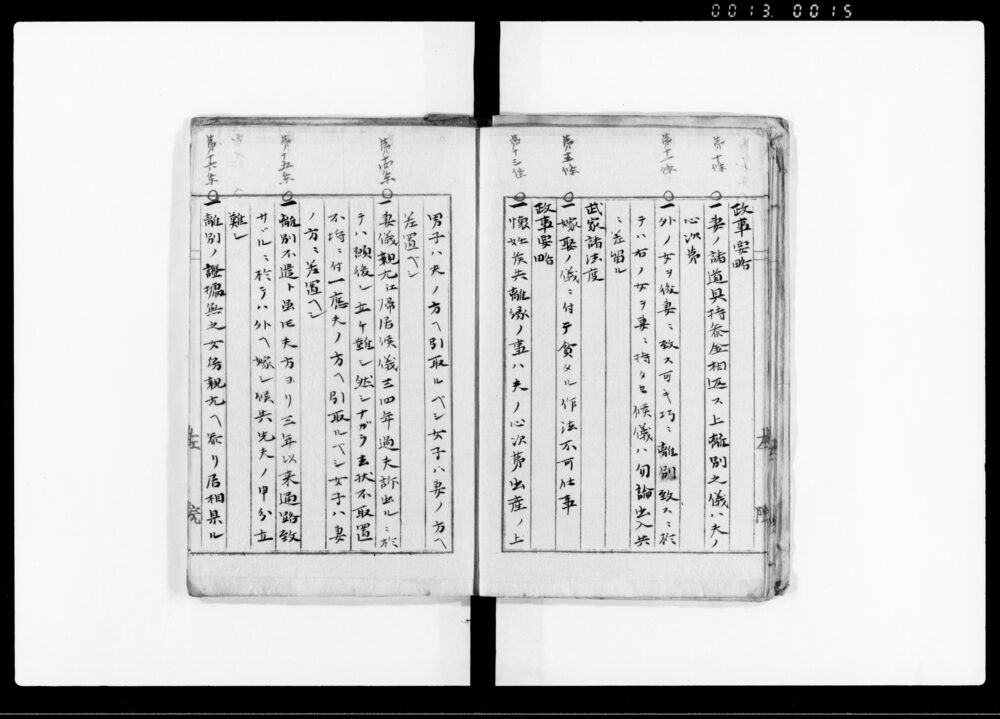 0013 0015
第十條
第十一條
第五條
第十三條
政事要略
一妻ノ諸道具持參金相返ス上離別之儀ハ夫ノ
心次第
一外ノ女ヲ後妻ニ致ス可キ巧ニ離別致スニ於
テハ右ノ女ヲ妻ニ持タセ候儀ハ勿論出入共
ニ差留ル
武家諸法度
一嫁娶ノ儀ニ付テ貪タル作法不可仕事
政事要略
一懷姙候共離縁ノ事ハ夫ノ心次第出産ノ上
第十四条
第十五条
第十六条
男子ハ夫ノ方ヘ引取ルベシ女子ハ妻ノ方ヘ
差置ベシ
一妻儀親元江帰居候儀三四年過夫訴出ルニ於
テハ願後レ立ケ難シ然シナガラ去状不取置
不埒ニ付一應夫ノ方ヘ引取ルベシ女子ハ妻
ノ方ニ差置ヘシ
一離別不遣ト虽𪜈夫方ヨリ三年以来通路致
サヾルニ於テハ外ヘ嫁シ候共先夫ノ申分立
難シ
一離別ノ證據無之女房親元ヘ參リ居相果ル
左院